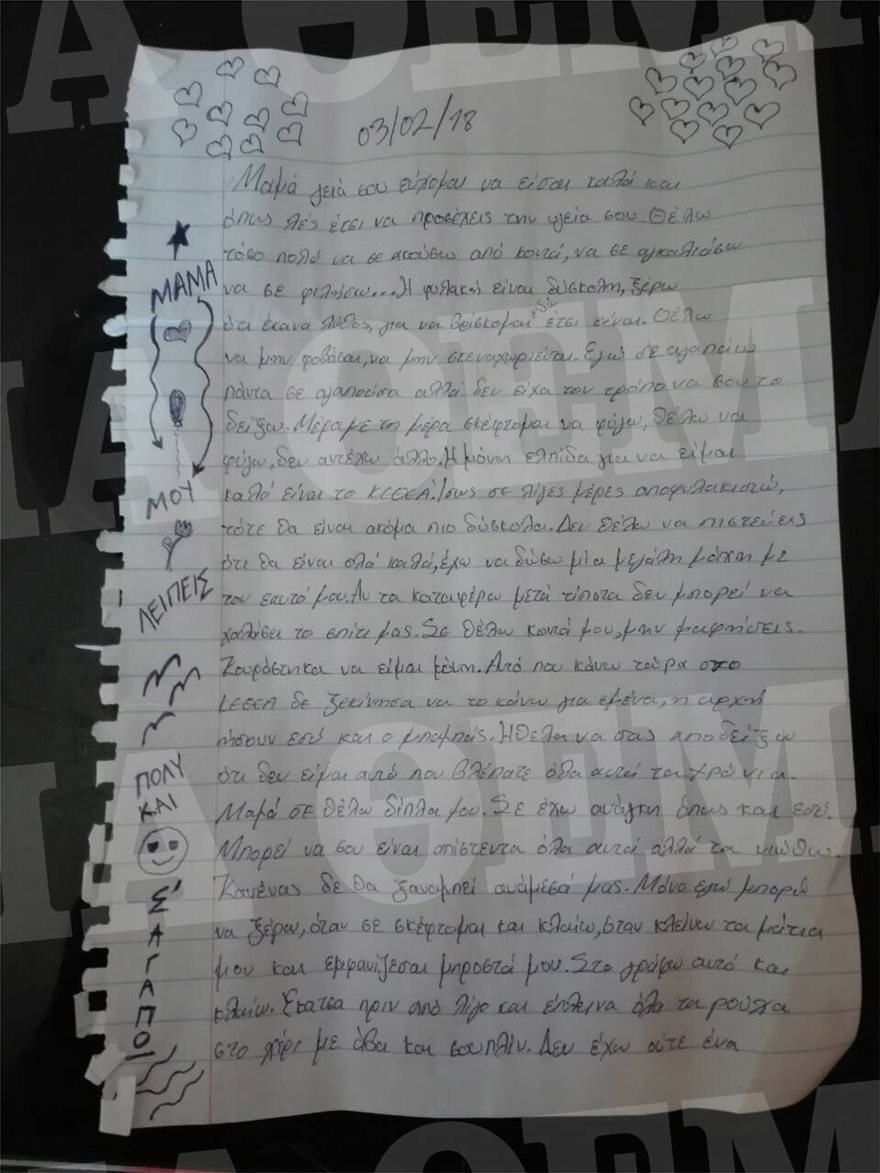 03/02/18
Μαμά γειά σου εύχομαι να είσαι καλά και
όπως λές έτσι να προσέχεις την υγεία σου. Θέλω
τόσο πολύ να σε ακούσω από κοντά, να σε αγκαλιάσω
να σε φιλήσω... Η φυλακή είναι δύσκολη, ξέρω
ότι έκανα λάθος, για να βρίσκομαι εδώ έτσι είναι. Θέλω
να μην φοβάσαι, να μην στεναχωριέσαι. Εγώ σε αγαπάω
πάντα σε αγαπούσα αλλά δεν είχα τον τρόπο να σου το
δείξω. Μέρα με τη μέρα σκέφτομαι να φύγω, θέλω να
φύγω, δεν αντέχω άλλο. Η μόνη ελπίδα για να είμαι
καλά είναι το ΚΕΘΕΑ. Ίσως σε λίγες μέρες αποφυλακιστώ,
τότε θα είναι ακόμα πιο δύσκολα. Δεν θέλω να πιστεύεις
ότι θα είναι ολά καλά, έχω να δώσω μία μεγάλη μάχη με
τον εαυτό μου. Αν τα καταφέρω μετά τίποτα δεν μπορεί να
χαλάσει το σπίτι μας. Σε θέλω κοντά μου, μην μ'αφήσεις.
Κουράστηκα να είμαι μόνη. Από που κάνω τώρα στο
ΚΕΘΕΑ δε ξεκίνησα να το κάνω για εμένα, η αρχή
ήσουν εσύ και ο μπαμπάς. Ήθελα να σας αποδείξω
ότι δεν είμαι αυτό που βλέπατε όλα αυτά τα χρόνια.
Μαμά σε θέλω δίπλα μου. Σε έχω ανάγκη όπως και εσύ.
Μπορεί να σου είναι απίστευτα όλα αυτά αλλά τα νιώθω.
Κανένας δε θα ξαναμπεί ανάμεσά μας. Μόνο εγώ μπορώ
να ξέρω, όταν σε σκέφτομαι και κλαίω, όταν κλείνω τα μάτια
μου και εμφανίζεσαι μπροστά μου. Στο γράφω αυτό και
κλαίω. Έκατσα πριν από λίγο και έπλεινα όλα τα ρούχα
στο χέρι με άβα και σουπλίν. Δεν έχω ούτε ένα
ΜΑΜΑ
ΜΟΥ
ΛΕΙΠΕΙΣ
ΠΟΛΥ
ΚΑΙ
Σ'
Α
Γ
Α
Π
Ο
ΘΕΜΑ
ΘΕΜΑ
ΘΕΜΑ